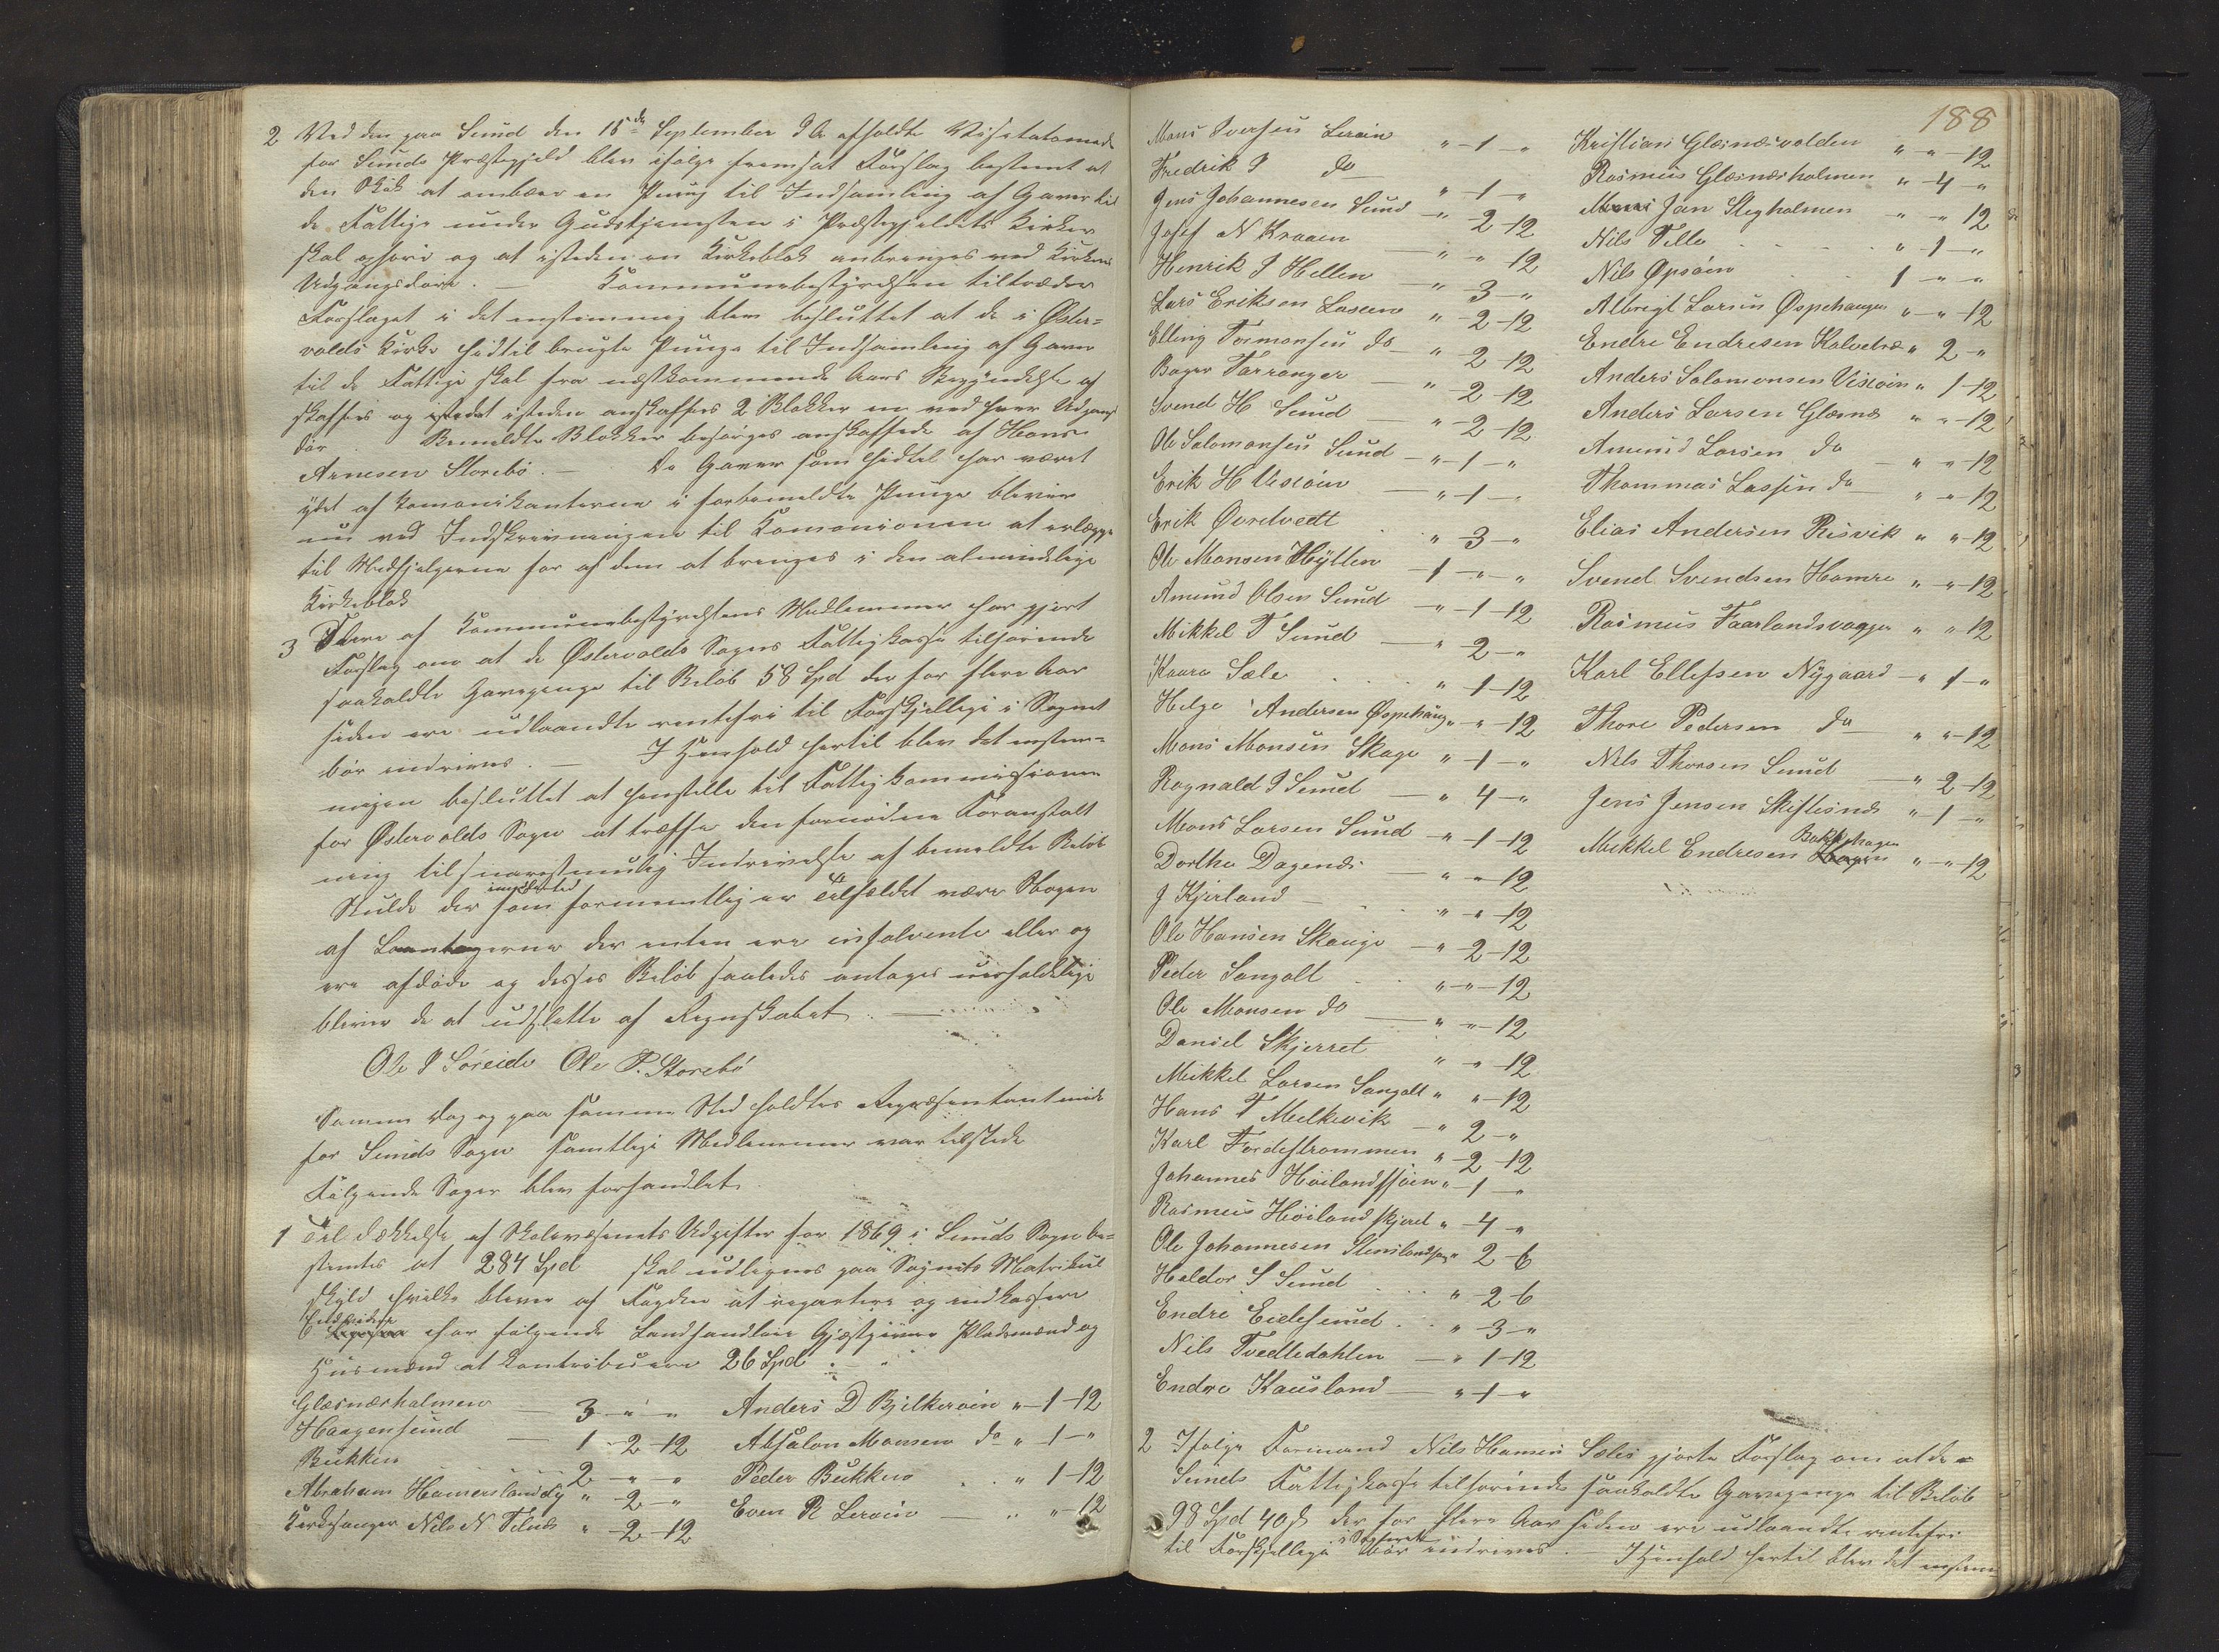 2 Ved den paa Sund den 15de September d. A. afholdte Visitatsmøde
for Sunds Præstegjeld blev ifølge fremsat Forslag bestemt at
den Skik at ombære en Pung til Indsamling af Gaver til
de Fattige under Gudstjenesten i Præstegjeldets Kirker
skal ophøre og at isteden en Kirkeblok anbringes ved Kirkens
Udgangsdøre. — Kommunebestyrelsen tiltræder
Forslaget i det enstemmig blev besluttet at de i Øster-
volds Kirke hidtil brugte Punge til Indsamling af Gaver
til de Fattige skal fra næstkommende Aars Begyndelse af
skaffes og isteden anskaffes 2 Blokker en ved hver Udgangs
dør. Bemeldte Blokker besørges anskaffede af Hans
Arnesen Storebø. — De Gaver som hidtil har været
ydet af Komunikanterne i forbemeldte Punge bliver
nu ved Indskrivningen til Komunionen at erlægge
til Medhjelperne for af dem at bringes i den almindelige
Kirkeblok
3 Flere af Kommunebestyrelsens Medlemmer har gjort
Forslag om at de Østervolds Sogns Fattigkasse tilhørende
saakaldte Gavepenge til Beløb 58 Spd der for flere Aar
siden ere udlaandte rentefri til Forskjellige i Sognet
bør inddrives. — I Henhold hertil blev det enstem-
migen besluttet at henstille til Fattigkommissionen
for Østervolds Sogn at træffe den fornødne Foranstalt
ning til snarestmulig Inddrivelse af bemeldte Beløb
Skulde der som formentlig er Tilfældet være Nogen
af Laantagerne der enten ere insolvente eller og
ere afdøde og disses Beløb saaledes antages uerholdelige
bliver de at udslette af Regnskabet. —
Ole I Søreide Ole P. Storebø
Samme Dag og paa samme Sted holdtes Repræsentantmøde
for Sunds Sogn samtlige Medlemmer var tilstede
Følgende Sager blev forhandlet.
1 Til Dækkelse af Skolevæsenets Udgifter for 1869 i Sunds Sogn be-
stemtes at 284 Spd skal udlignes paa Sognets Matrikul
skyld hvilke bliver af Fogden at repartere og indkassere
har følgende Landhandlere Gjæstgivere Pladsmænd og
Husmænd at kontribuere 26 Spd.
Glæsnæsholmen — 3 - " - " Anders D Bjelkerøen " - 1 - 12
Haagensund — 1 - 2 - 12 Absalon Monsen do " 1 - "
Bukken 2 - " - " Peder Bukken " 1 - 12
Abraham Hamerslandsv " - 2 - " Even R Lerøen " - " - 12
Kirkesanger Nils N Telnes " - 2 - 12
188
Mons Iversen Lerøen " - 1 - "
Fredrik I do " - 1 - "
Jens Johannesen Sund - " 2 - 12
Josef N Kraaen " - " 12
Henrik I Hellen " 3 - "
Lars Eriksen Laseen " - 2 - 12
Elling Tormonsen do - " 2 - 12
Bager Tarranger — " 2 - 12
Svend H Sund " - 2 - 12
Ole Salomonsen Sund - " - 1 - "
Erik H Visøien — " - 1 - "
Erik Øvretvedt " - 3 - "
Ole Monsen Hyllen - 1 - " - "
Amund Olsen Sund - " - 1 - 12
Mikkel T Sund — " 2 - "
Kaara Sæle " 1 - 12
Helge Andersen Øspehaug " - " - 12
Mons Monsen Skage " - 1 - "
Rognald I Sund — " 4 - "
Mons Larsen Sund - " - 1 - 12
Dorthe Dagends — " - " 12
J Kjerland — " - " 12
Ole Hansen Skauge - " - 2 - 12
Peder Sangolt " - " - 12
Ole Monsen do — " - " - 12
Daniel Skjerret " - " 12
Mikkel Larsen Sangolt " " - 12
Hans T Melkevik - " 2 - "
Karl Fordestrømmen " - 2 - 12
Johannes Høilandssjøen " - 1 - "
Rasmus Høilandskjæret " - 4 - "
Ole Johannesen Stenslandsvaag " 2 - 6
Haldor S Sund " - 2 - 6
Endre Eidesund " - 3 - "
Nils Tvedtedahlen — " 1 - 12
Endre Kausland — " - 1 - "
Kristian Glæsnæsvolden " - " - 12
Rasmus Glæsnæsholmen " - 4 - "
Jan Stegholmen - " - " 12
Nils Telle " - 1 - "
Nils Øpsøen 1 - " - "
Albrigt Larsen Øspehaugen " - " - 12
Endre Endresen Kalvetræ " 2 - "
Anders Salomonsen Visøien " 1 - 12
Anders Larsen Glæsnæs " - " - 12
Amund Larsen do - " - " - 12
Thommas Lassen do " - " - 12
Elias Andersen Risvik " " - 12
Svend Svendsen Hamre " - " - 12
Rasmus Faarlandsvaagen " - " 12
Karl Ellefsen Nygaard - " 1 - "
Thore Pedersen do " " - 12
Nils Thorsen Sund — " 2 - 12
Jens Jensen Skiftesnæs " - 1 - "
Bakkehagen
Mikkel Endresen " - " - 12
2 Ifølge Formand Nils Hansen Sæles gjorte Forslag om at de
Sunds Fattigkasse tilhørende saakaldte Gavepenge til Beløb
98 Spd 40 s der for flere Aar siden ere udlaandte rentefri
til Forskjellige bør inddrives. — I Henhold hertil blev det enstem-